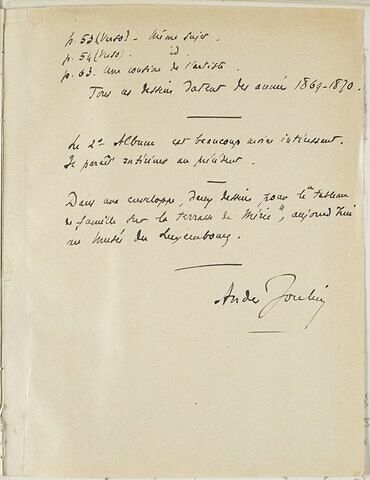 p. 53 (Verso) - Même sujet.
p. 54 (Verso). id.
p. 63. Une cousine de l'artiste.
Tous ces dessins datent des années 1869-1870.
Le 2e Album est beaucoup moins intéressant.
Il paraît antérieur au précédent.
Dans une enveloppe, deux dessins pour le "tableau
de famille sur la terrasse de Méric", aujourd'hui
au Musée du Luxembourg.
André Joubin